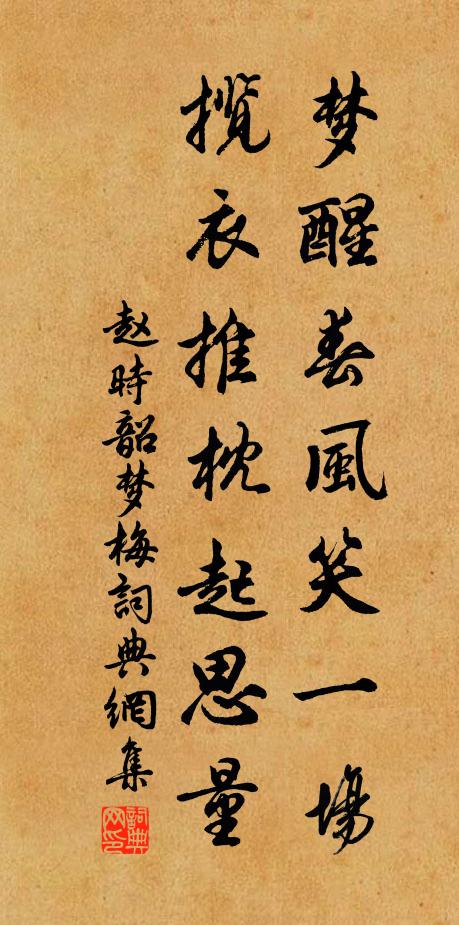 梦醒春風笑一場
攬衣推枕起思量
赵時韶梦梅詞典網集
詞典网印